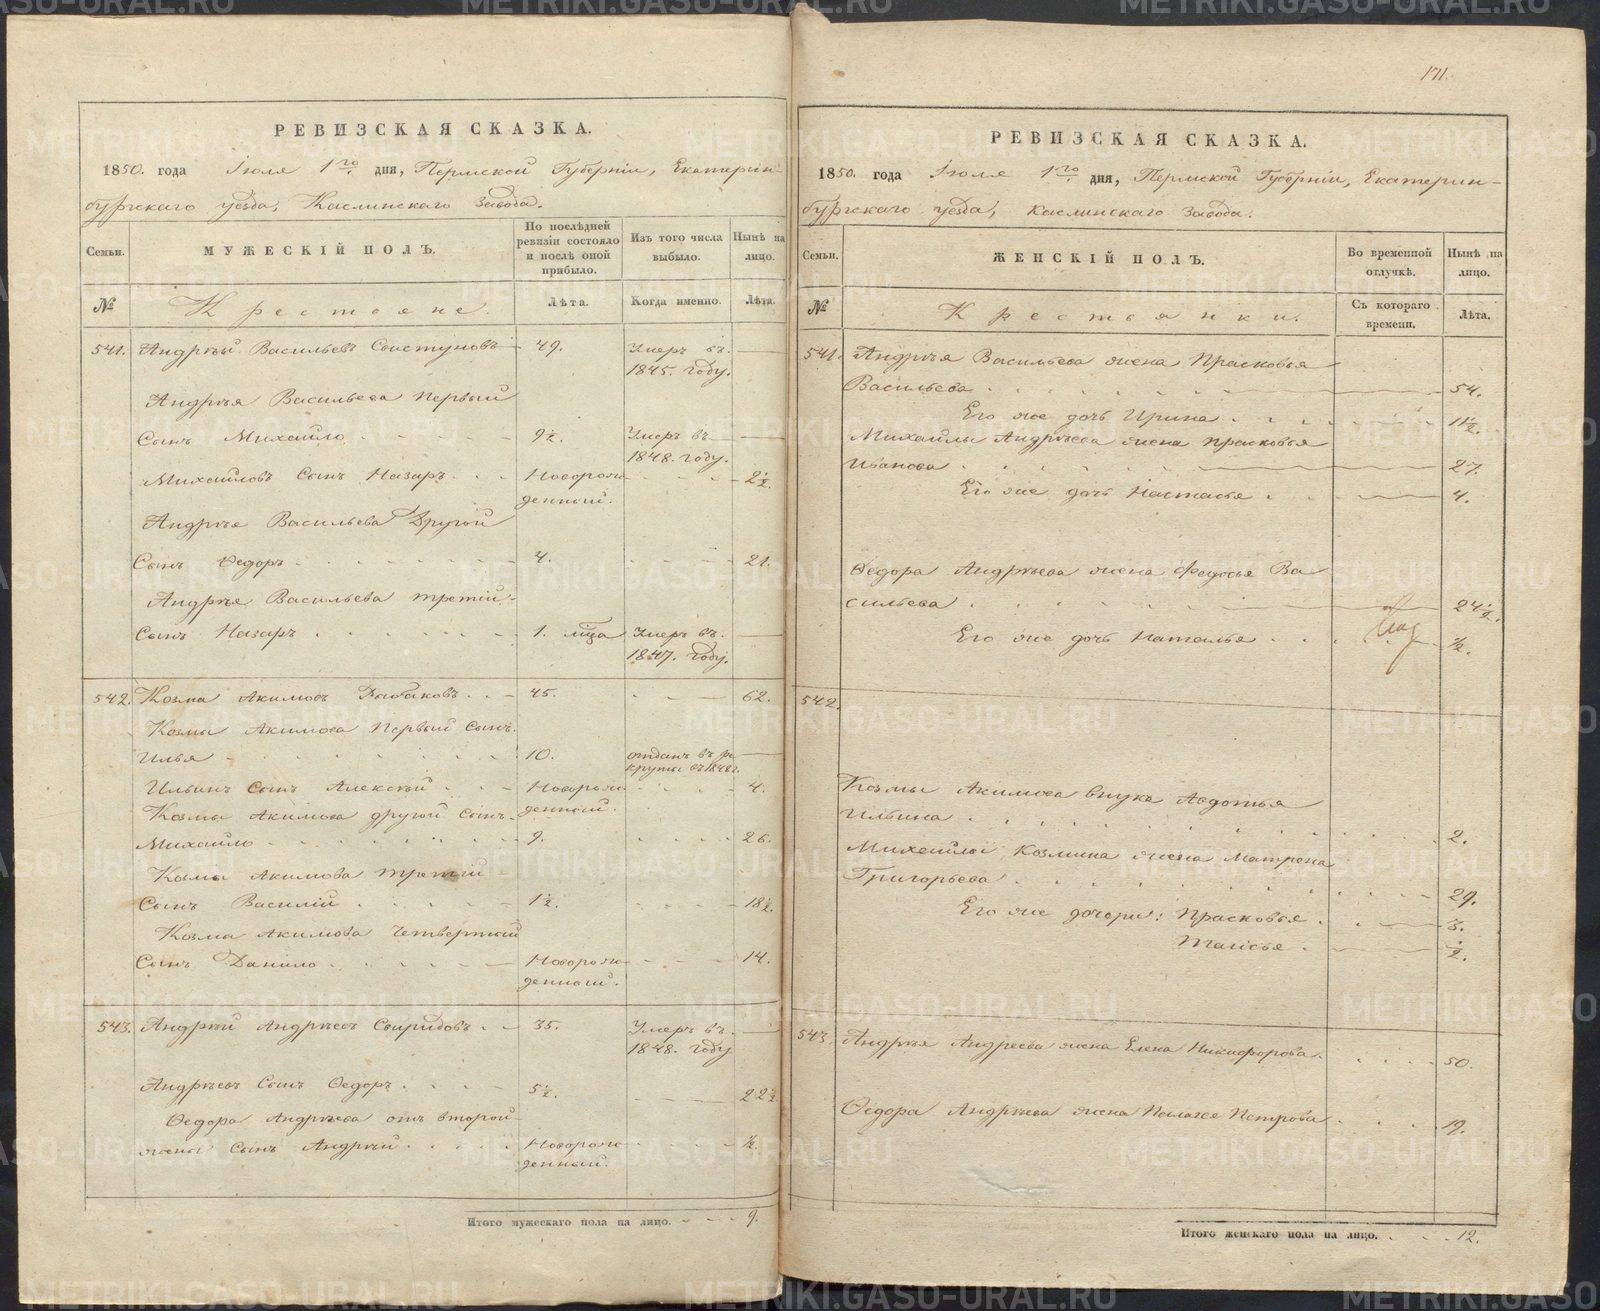 171.
РЕВИЗСКАЯ СКАЗКА.
1850. года Іюля 1го дня, Пермской Губерніи, Екатерин-
бургскаго уезда, Каслинскаго Завода.
Семьи.
МУЖЕСКІЙ ПОЛЪ.
По послѣдней ревизіи состояло и послѣ оной прибыло.
Изъ того числа выбыло.
Нынѣ на лицо.
№
Крестьяне.
Лѣта.
Когда именно.
Лѣта.
541. Андрѣй Васильевъ Свистуновъ 49. Умеръ въ
1845. году.
Андрѣя Васильева Первый
Сынъ Михайло 9½. Умеръ въ
1848. году.
Михайловъ Сынъ Назаръ Новорож- 2½.
денный.
Андрѣя Васильева Другой
Сынъ Ѳедоръ 4. 21.
Андрѣя Васильева третій
Сынъ Назаръ 1. мца Умеръ въ.
1847. году.
542. Козма Акимовъ Рыбаковъ 45. 62.
Козмы Акимова Первый сынъ
Илья 10. отданъ въ ре
круты въ 1848 г.
Ильинъ Сынъ Алексѣй Новорож- 4.
Козмы Акимова другой сынъ денный.
Михайло 9. 26.
Козмы Акимова третій
Сынъ Василій 1½. 18½.
Козмы Акимова Четвертый
Сынъ Данило Новорож- 14.
денный.
543. Андрѣй Андрѣевъ Свиридовъ 35. Умеръ въ.
1848. году
Андрѣевъ Сынъ Ѳедоръ 5½. 22½
Ѳедора Андрѣева отъ второй
жены Сынъ Андрѣй Новорож- ½.
денный.
Итого мужескаго пола на лицо. 9.
РЕВИЗСКАЯ СКАЗКА.
1850. года Іюля 1го дня, Пермской Губерніи, Екатерин-
бургскаго уезда, Каслинскаго Завода.
Семьи.
ЖЕНСКІЙ ПОЛЪ.
Во временной отлучкѣ.
Нынѣ на лицо.
№
Крестьянки.
Съ котораго времени.
Лѣта.
541. Андрѣя Васильева жена Прасковья
Васильева 54.
Его же дочь Ирина 11½.
Михайлы Андрѣева жена Прасковья
Иванова 27.
Его же дочь Настасья 4.
Ѳедора Андрѣева жена Федосья Ва
сильева 24½.
Его же дочь Наталья ½.
542.
Козмы Акимова внука Авдотья
Ильина 2.
Михайлы Козмина жена Матрена
Григорьева 29.
Его же дочери: Прасковья 3.
Таисья ½.
543. Андрѣя Андреева жена Елена Никифорова 50.
Ѳедора Андрѣева жена Пелагея Петрова 19.
Итого женскаго пола на лицо. 12.
METRIKI.GASO-URAL.RU